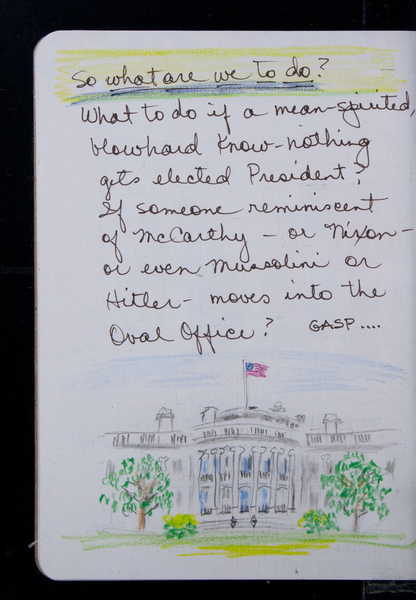 So what are we to do?
What to do if a mean-spirited,
blowhard Know-nothing
gets elected President?
If someone reminiscent
of McCarthy - or Nixon -
or even Mussolini or
Hitler - moves into the
Oval Office? GASP....